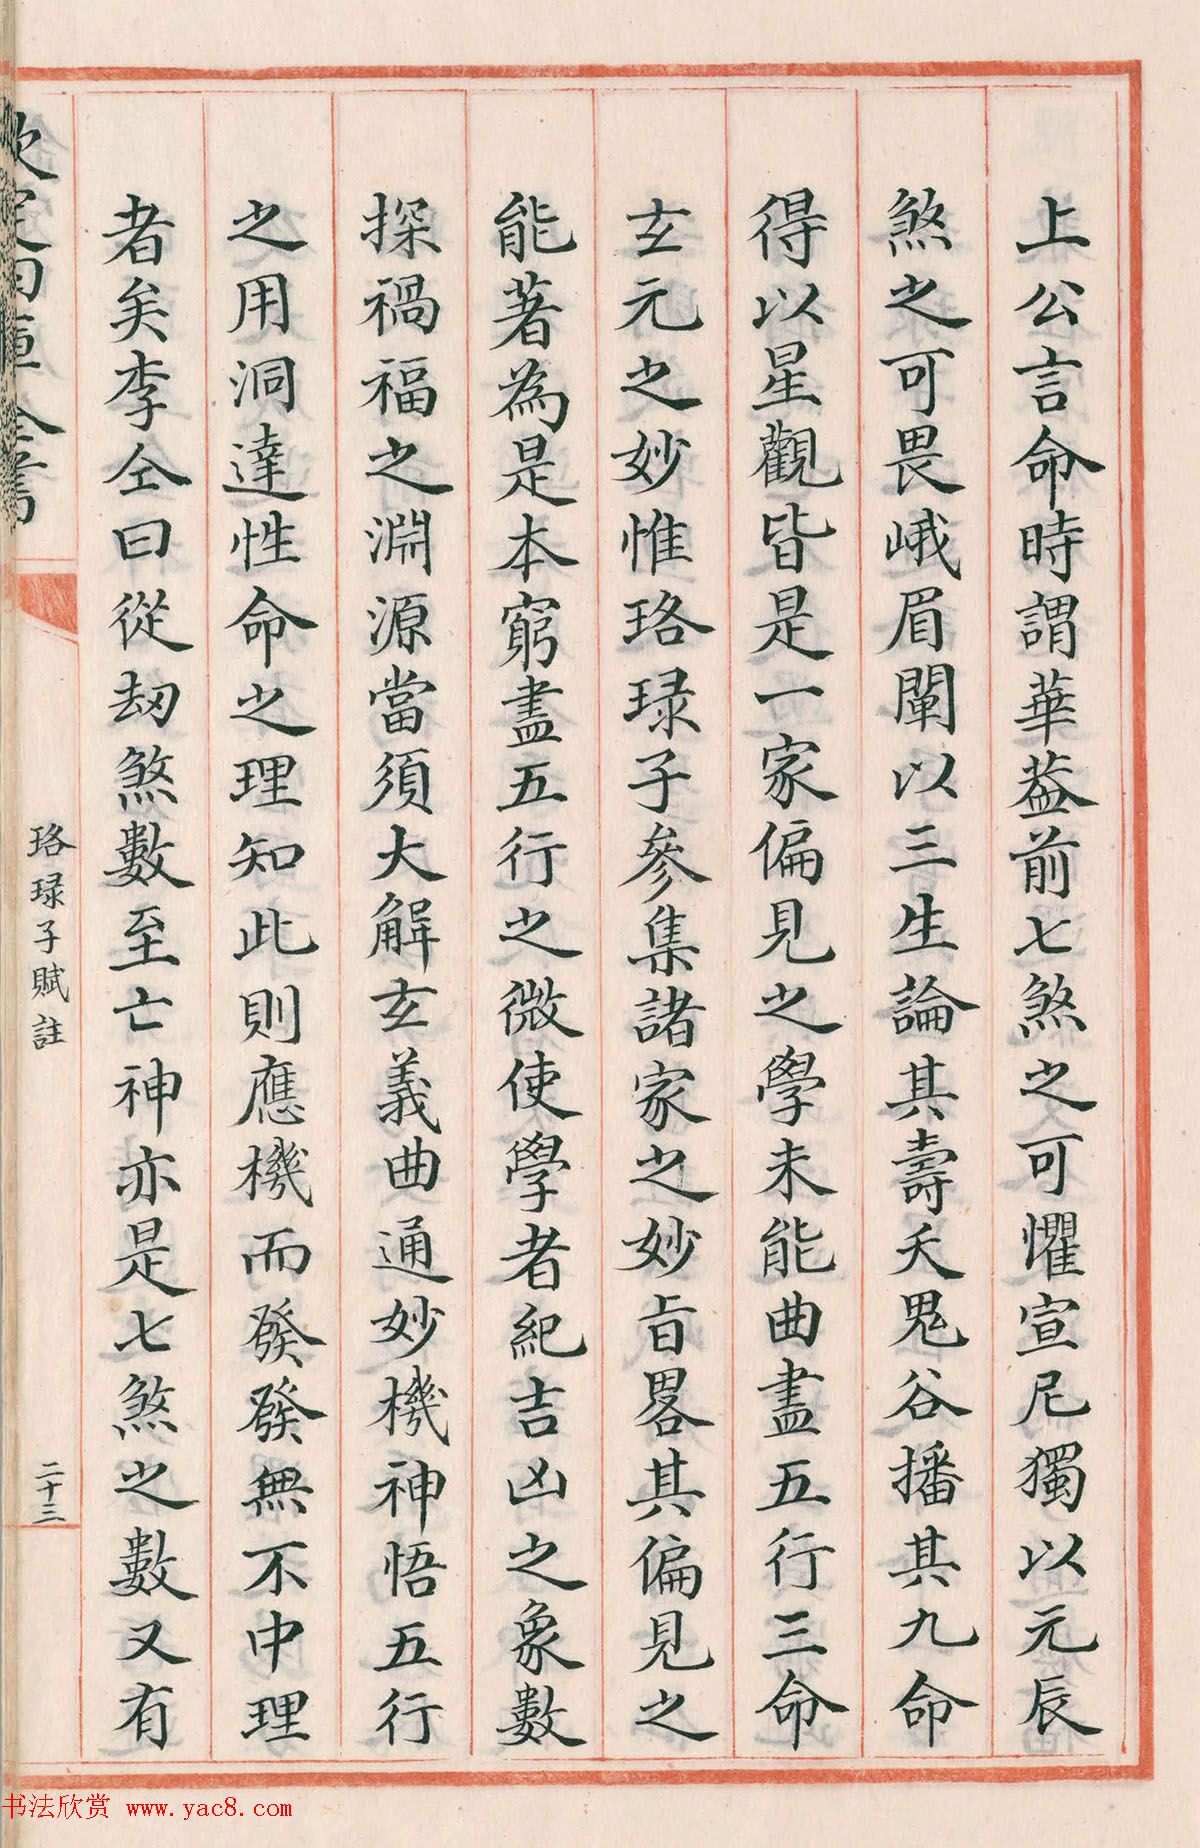 上公言命時謂華葢前七煞之可懼宣尼獨以元辰
煞之可畏峨眉闡以三生論其壽夭鬼谷播其九命
得以星觀皆是一家偏見之學未能曲盡五行三命
玄元之妙惟珞琭子參集諸家之妙㫖畧其偏見之
能著為是本窮盡五行之微使學者紀吉凶之象數
探禍福之淵源當須大解玄義曲通妙機神悟五行
之用洞達性命之理知此則應機而發發無不中理
者矣李仝曰從刼煞數至亡神亦是七煞之數又有
欽定四庫全書
珞琭子賦註
二十三
书法欣赏 www.yac8.com